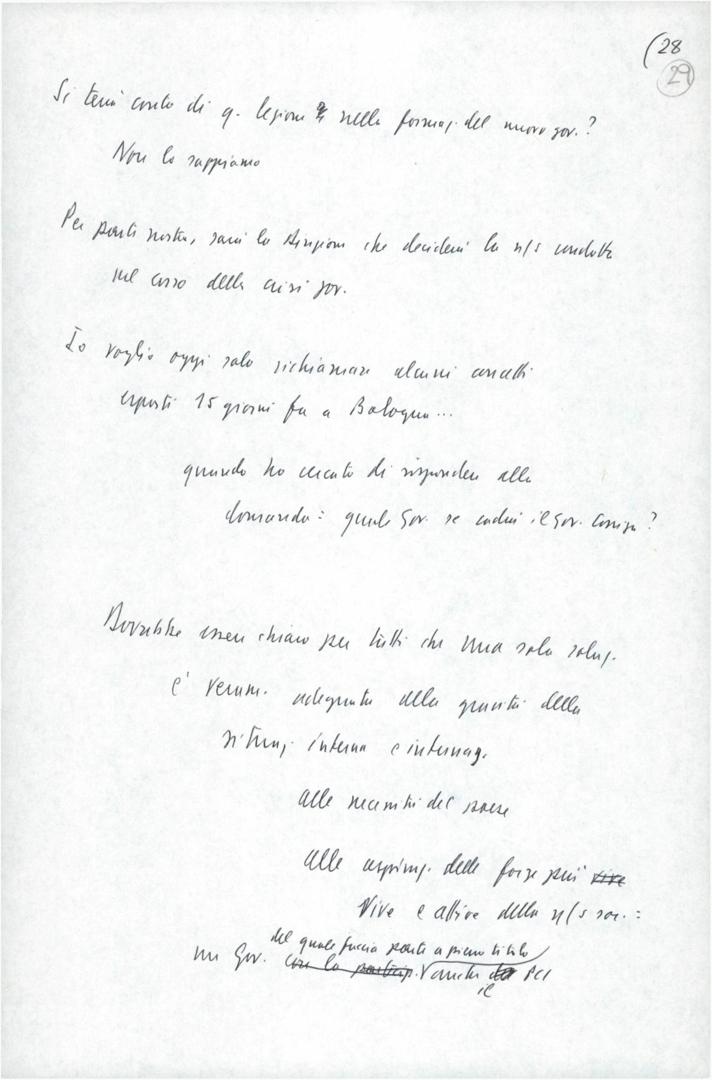 (28
29
Si terrà conto di q. lezione nella formaz. del nuovo gov.?
Non lo sappiamo
Per parte nostra, sarà la Direzione che deciderà la n/s condotta
nel corso della crisi gov.
Io voglio oggi solo richiamare alcuni concetti
esposti 15 giorni fa a Bologna...
quando ho cercato di rispondere alla
domanda: quale Gov. se cadrà il Gov. Cossiga?
Dovrebbe essere chiaro per tutti che una sola soluz.
è veram. adeguata alla gravità della
situaz. interna e internaz.
alle necessità del paese
alle aspiraz. delle forze più vive
vive e attive della n/s soc.:
del quale faccia parte a pieno titolo
un Gov. con la partecip. anche del PCI
il